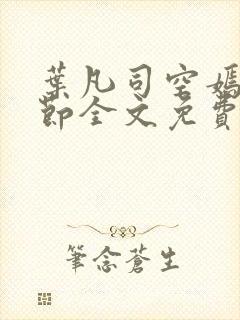 葉凡司空嫣
節全文免費
筆念蒼生